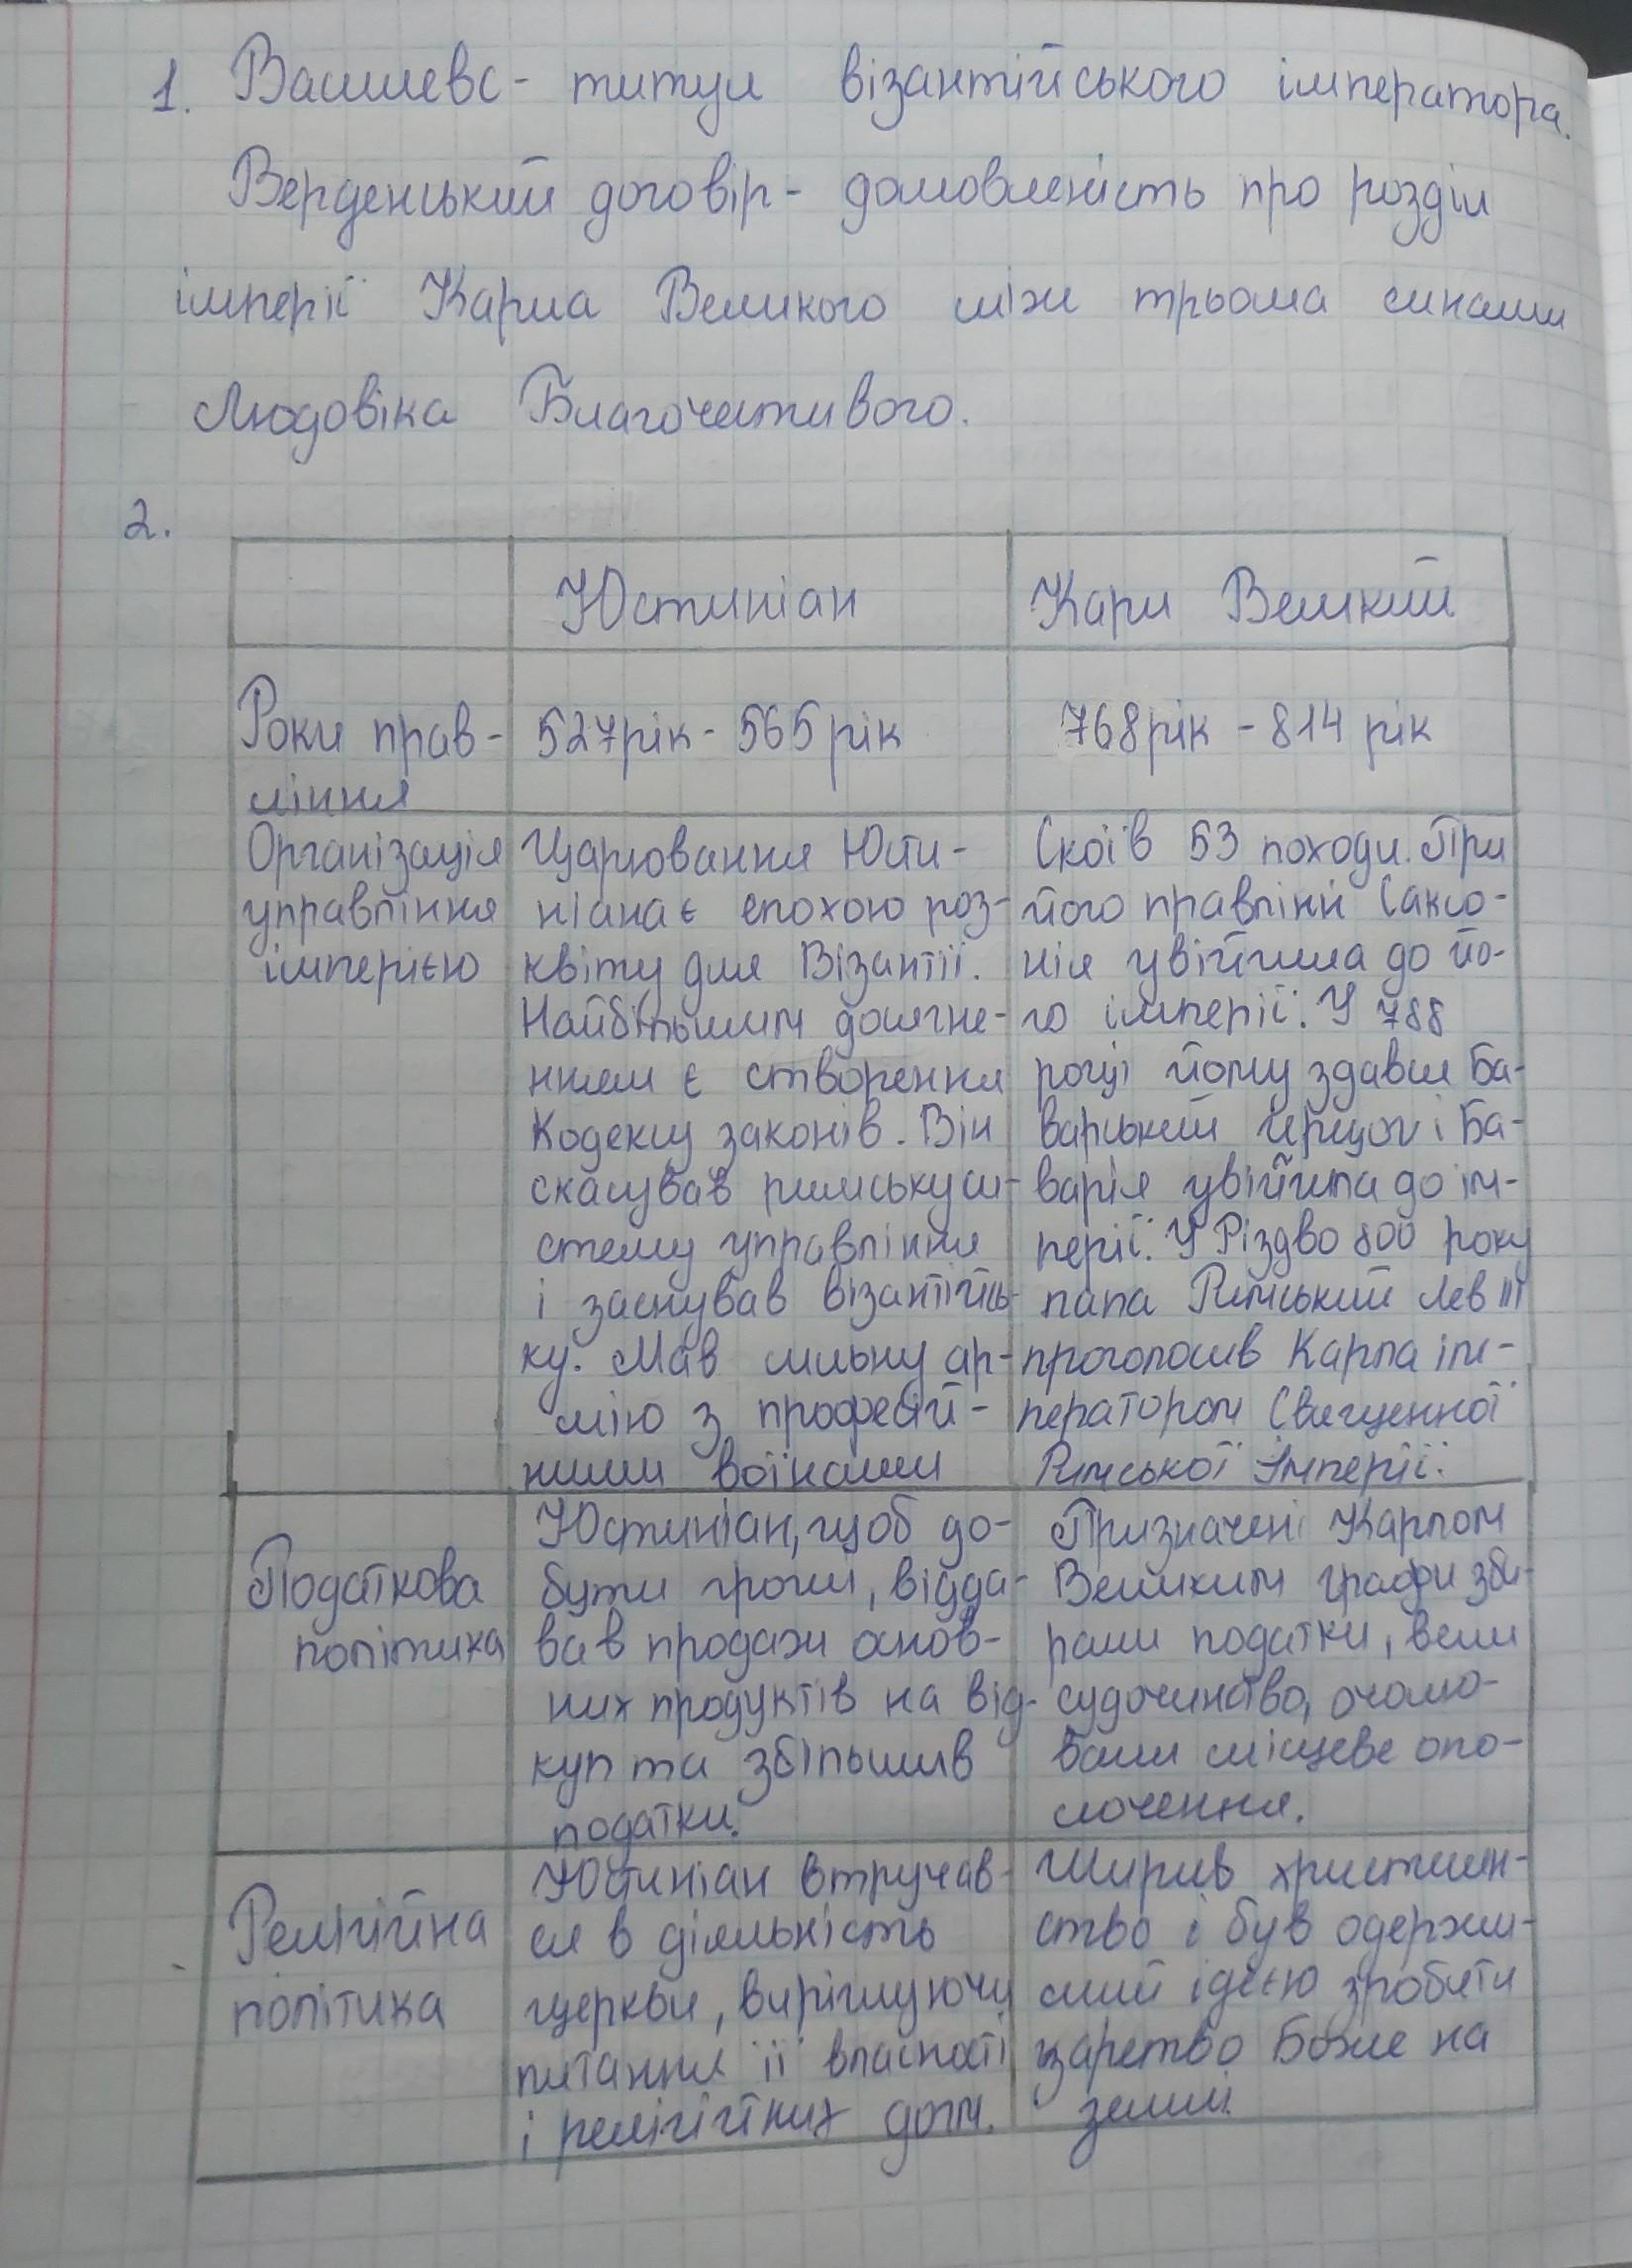 1. Василевс - титул візантійського імператора.
Верденський договір - домовленість про розділ
імперії Карла Великого між трьома синами
Людовіка Благочестивого.
2.
Юстиніан
Карл Великий
Роки прав-
ління
527рік - 565 рік
768рік - 814 рік
Організація
управління
імперією
Царювання Юсти-
ніана є епохою роз-
квіту для Візантії.
Найбільшим досягне-
нням є створення
Кодексу законів. Він
скасував римську си-
стему управління
і заснував візантійсь-
ку. Мав сильну ар-
мію з професій-
ними воїнами
Скоїв 53 походи. При
його правлінні Саксо-
нія увійшла до йо-
го імперії. У 788
році йому здався Ба-
варський герцог і Ба-
варія увійшла до ім-
перії. У Різдво 800 року
папа Римський Лев III
проголосив Карла ім-
ператором Священної
Римської Імперії.
Податкова
політика
Юстиніан, щоб до-
бути гроші, відда-
вав продажі основ-
них продуктів на від-
куп та збільшив
податки.
Призначені Карлом
Великим графи зби-
рали податки, вели
судочинство, очолю-
вали місцеве опо-
лочення.
Релігійна
політика
Юстиніан втручав-
ся в діяльність
церкви, вирішуючи
питання її власності
і релігійних догм.
Ширив християн-
ство і був одержи-
мий ідеєю зробити
царство Боже на
землі.